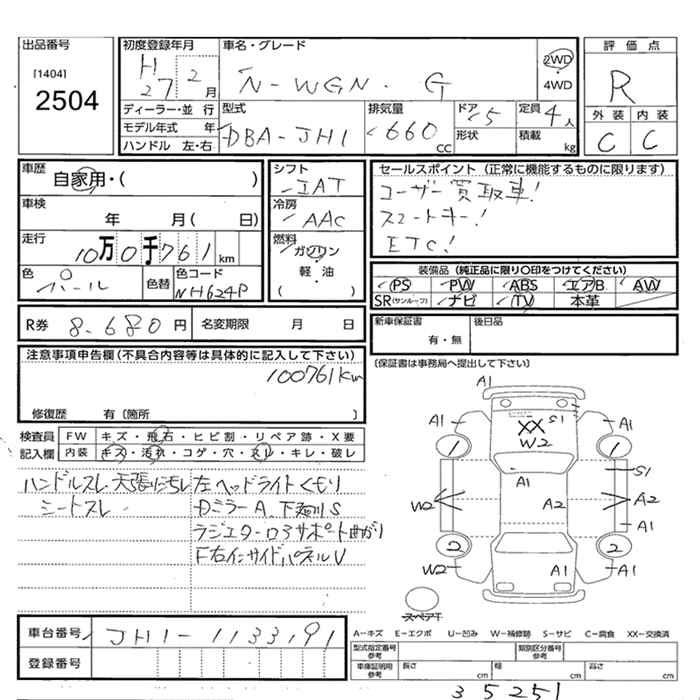 出品番号
[1404]
2504
初度登録年月
H 27 2 月
車名・グレード
N-WGN・G
2WD
4WD
評価点
R
外装 内装
C C
ディーラー・並行
モデル年式 年
ハンドル 左・右
型式
DBA-JH1
排気量
660
CC
ドア 5
形状
定員 4人
積載 kg
車歴
自家用・( )
車検
年 月( 日)
走行
10万0千761 km
色
パール
色替
色コード
NH624P
シフト
IAT
冷房
AAC
燃料
ガソリン
軽・油
( )
セールスポイント (正常に機能するものに限ります)
ユーザー買取車!
スマートキー!
ETC!
装備品 (純正品に限り○印をつけてください)
PS PW ABS エアB AW
SR(サンルーフ) ナビ TV 本革
R券 8,680 円 名変期限 月 日
新車保証書
有・無
後日品
(保証書は事務局へ提出して下さい)
注意事項申告欄(不具合内容等は具体的に記入して下さい)
100761km
修復歴 有〔箇所 〕
検査員
記入欄
FW キズ・飛石・ヒビ割・リペア跡・X要
内装 キズ・汚れ・コゲ・穴・スレ・キレ・破レ
ハンドルスレ 天張にちレ 左ヘッドライトくもり
シートスレ
DミラーA 下廻りS
ラジエターロアサポート曲がり
F右インサイドパネルU
A1
A1
XX
S1
W2
A1
1
1
A1
S1
W2
A2
A2
A1
2
2
W2
A1
A1
スペア T
A-キズ E-エクボ U-凹み W-補修跡 S-サビ C-腐食 XX-交換済
車台番号
JH1-1133191
登録番号
型式指定番号
参考
類別区分番号
参考
車庫証明用
参考
長さ cm
幅 cm
高さ cm
35251